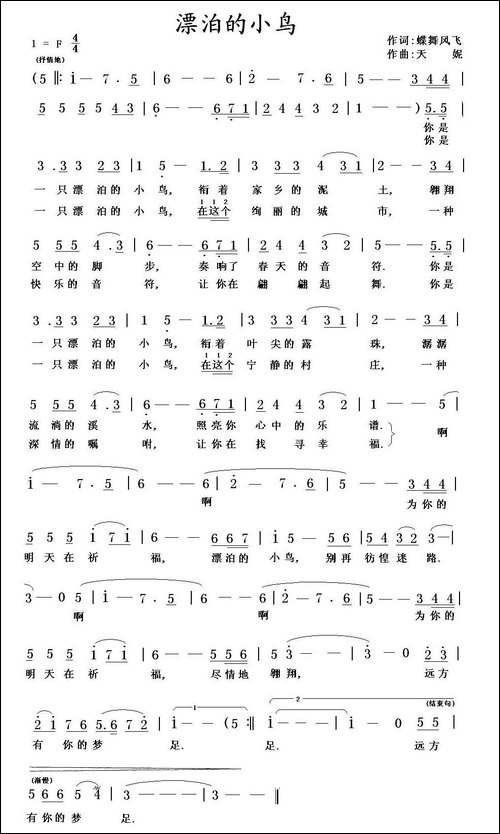 漂泊的小鸟
1 = F 4/4
作词:蝶舞风飞
作曲:天 妮
(抒情地)
(5 ‖: i — 7 . 5 | 6 — — — | i — 7 . 6 | 5 — — 3 4 4 |
5 5 5 5 3 4 | 5 — — — | 6 — — 6 7 1 | 1 — — ) 5 . 5 |
你是
你是
3 . 3 3 2 3 | 1 5 — 1 . 2 | 3 3 3 4 3 1 | 5 — — 3 4 4 |
一 只 漂 泊 的 小 鸟, 衔 着 家 乡 的 泥 土, 翱翔
一 只 漂 泊 的 小 鸟, 在这个 绚 丽 的 城 市, 一 种
5 5 5 4 . 3 | 6 — — 6 7 1 | 2 2 4 3 2 | 5 — — 5 . 5 |
空 中 的 脚 步, 奏 响 了 春 天 的 音 符. 你是
快 乐 的 音 符, 让 你 在 翩 翩 起 舞. 你是
3 . 3 3 2 3 | 1 5 — 1 . 2 | 3 3 3 4 3 1 | 5 — — 3 4 4 |
一 只 漂 泊 的 小 鸟, 衔 着 叶 尖 的 露 珠, 潺潺
一 只 漂 泊 的 小 鸟, 在这个 宁 静 的 村 庄, 一 种
5 5 5 4 . 3 | 6 — — 6 7 1 | 2 2 4 3 2 | 1 — — 5 |
流 淌 的 溪 水, 照 亮 你 心 中 的 乐 谱. 啊
深 情 的 嘱 咐, 让 你 在 找 寻 幸 福.
i — 7 . 5 | 6 — — 6 | 2 — 7 . 6 | 5 — — 3 4 4 |
啊 为 你 的
5 5 5 i 7 i | 6 — — 6 6 7 | i 5 — 5 6 6 | 5 4 3 3 2 2 |
明 天 在 祈 福, 漂 泊 的 小 鸟, 别 再 彷 徨 迷 路.
3 — 0 5 | i — 7 . 5 | 6 — — 6 | 2 — 7 . 6 | 5 — — 3 4 4 |
啊 啊 为 你 的
5 5 5 i 7 i | 6 — — 5 5 6 | i 5 — — | 3 — 0 2 3 |
明 天 在 祈 福, 尽 情 地 翱 翔, 远 方
(结束句)
2 i 7 6 5 . 6 7 2 | i — — (5 :‖ i — — — | i — — 0 5 5 |
有 你 的 梦 足. 足. 远 方
(渐慢)
5 6 6 6 5 4 | 3 — — — | 3 — — 0 ‖
有 你 的 梦 足.